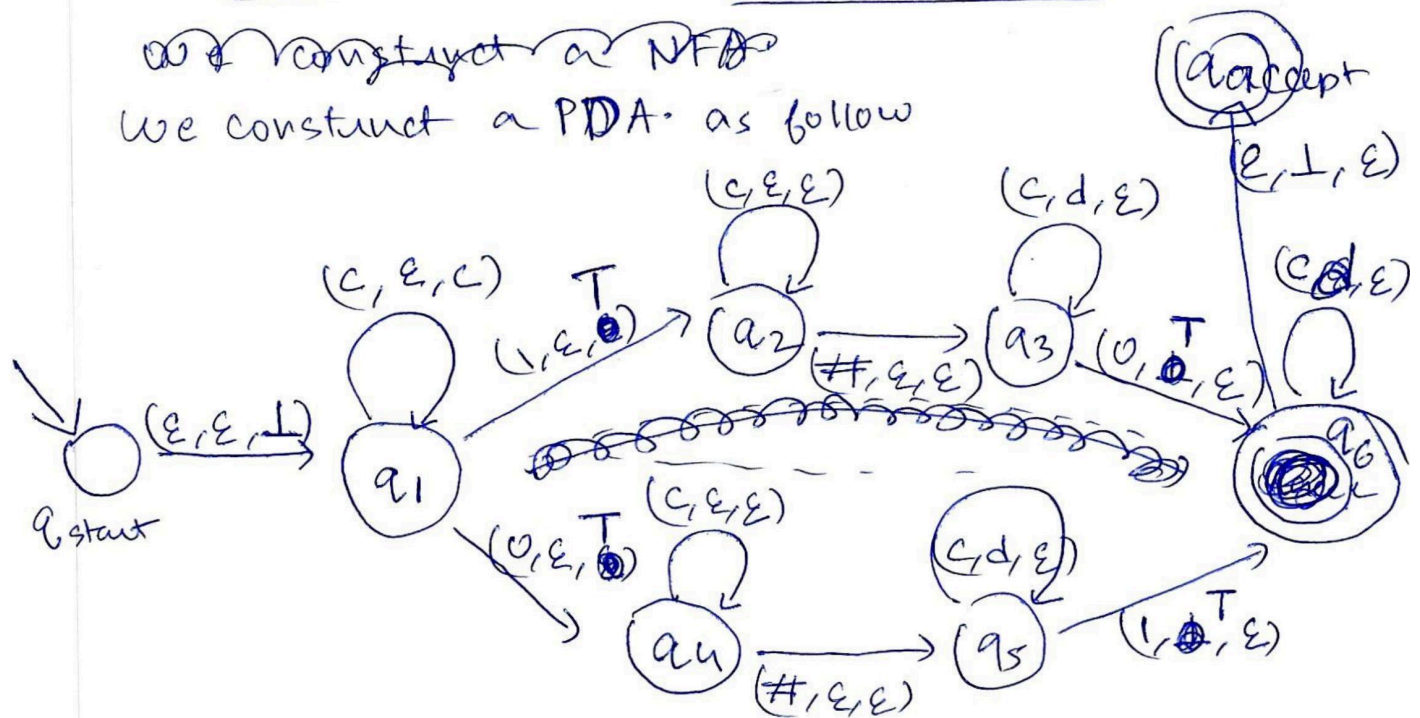 we construct a NFA
we construct a PDA. as follow
q accept
(ε, ⊥, ε)
(c, ε, ε)
(c, d, ε)
(c, ε, c)
(1, ε, T)
q2
(#, ε, ε)
q3
(0, T, ε)
(c, ε)
(ε, ε, ⊥)
q1
q6
q start
(0, ε, T)
(c, ε, ε)
(c, d, ε)
q4
(#, ε, ε)
q5
(1, T, ε)